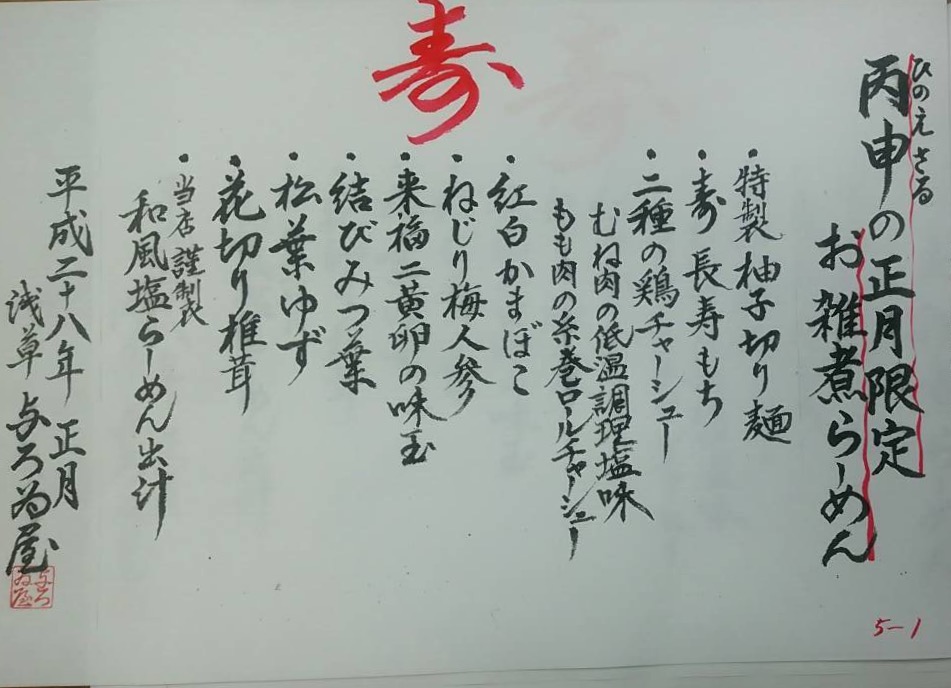 寿
ひのえさる
丙申の正月限定
お雑煮らーめん
・特製柚子切り麺
・寿長寿もち
・二種の鶏チャーシュー
むね肉の低温調理塩味
もも肉の糸巻ロールチャーシュー
・紅白かまぼこ
・ねじり梅人参
・来福二黄卵の味玉
・結びみつ葉
・松葉ゆず
・花切り椎茸
・当店謹製
和風塩らーめん出汁
平成二十八年 正月
浅草 与ろゐ屋
与ろゐ屋
5-1